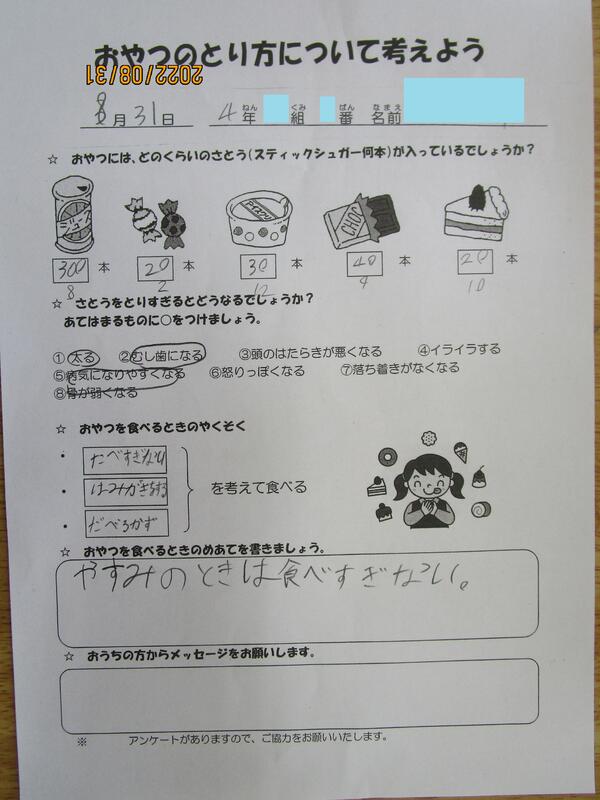 おやつのとり方について考えよう
2022/08/31
8月31日 4年 組 番 名前
ねん くみ ばん なまえ
☆ おやつには、どのくらいのさとう(スティックシュガー何本)が入っているでしょうか?
ジュース アイスクリーム CHOC
300本 20本 30本 40本 20本
8 2 12 4 10
☆ さとうをとりすぎるとどうなるでしょうか?
あてはまるものに○をつけましょう。
①太る ②むし歯になる ③頭のはたらきが悪くなる ④イライラする
⑤病気になりやすくなる ⑥怒りっぽくなる ⑦落ち着きがなくなる
⑧骨が弱くなる
☆ おやつを食べるときのやくそく
・ たべすぎない
・ はみがきをする
・ だべるかず
を考えて食べる
☆ おやつを食べるときのめあてを書きましょう。
やすみのときは食べすぎない。
☆ おうちの方からメッセージをお願いします。
※ アンケートがありますので、ご協力をお願いいたします。